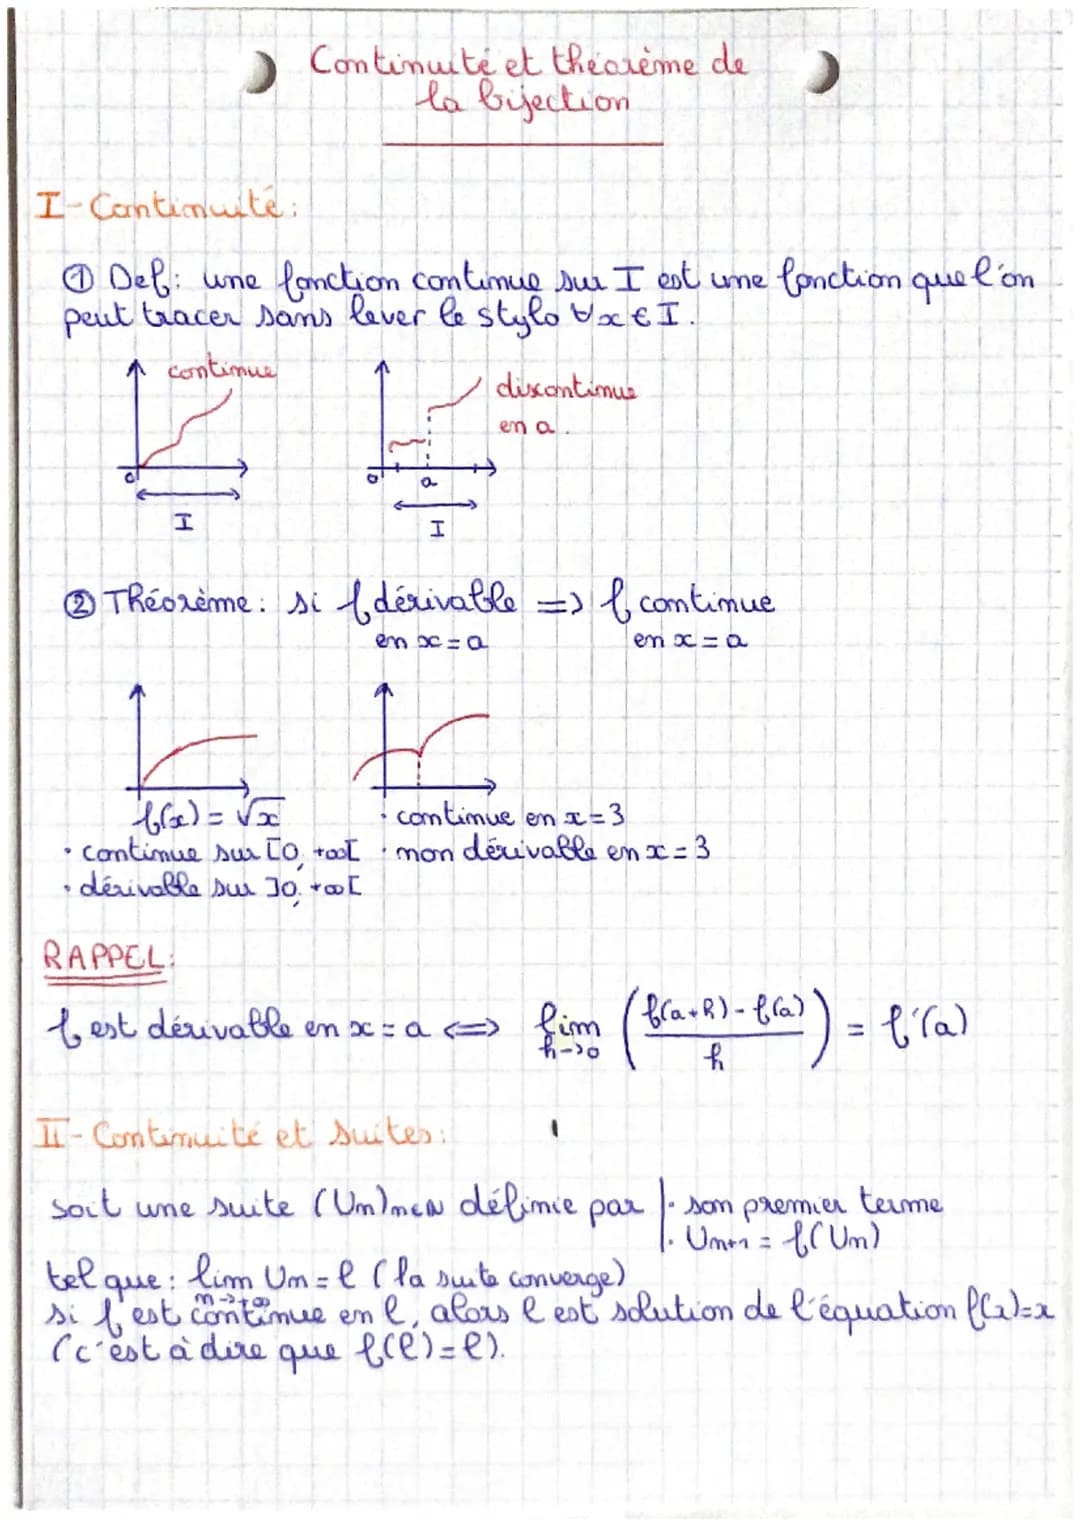 Continuité et théorème de
la bijection
I - Continuité :
① Def : une fonction continue sur I est une fonction que l'on
peut tracer sans lever le stylo ∀x ∈ I.
continue
discontinue
en a.
0
I
0
a
I
② Théorème : si f dérivable => f continue
en x = a en x = a
f(x) = √x
· continue en x = 3
· continue sur [0, +∞[
· non dérivable en x = 3
· dérivable sur ]0, +∞[
RAPPEL :
f est dérivable en x = a <=> lim h->0 ( (f(a+h) - f(a)) / h ) = f'(a)
II - Continuité et suites :
soit une suite (Un)n∈N définie par | · son premier terme
| · Un+1 = f(Un)
tel que : lim n->+∞ Un = l (la suite converge)
si f est continue en l, alors l est solution de l'équation f(x)=x
(c'est à dire que f(l)=l).